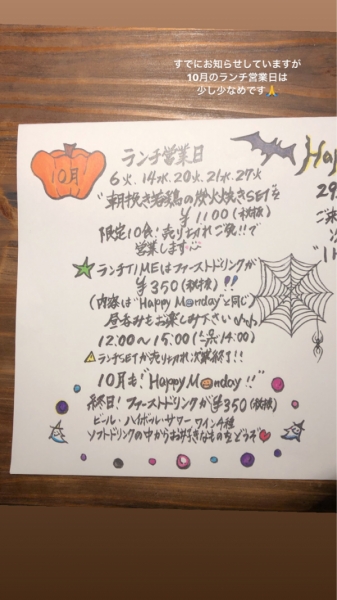 すでにお知らせしていますが
10月のランチ営業日は
少し少なめです🙏
10月!
ランチ営業日
6火.14水.20火.21水.27火
"朝挽き若鶏の炭火焼きSET"を
¥1100(税抜)
限定10食!売り切れご免!!で
営業します
Happ
29
ご来
次
"1
ランチTIMEはファーストドリンクが
¥350(税抜)!!
(内容は"Happy Monday"と同じ)
昼呑みもお楽しみ下さい♪♪
12:00〜15:00(L.O.14:00)
⚠ランチSETが売り切れ次第終了!!
10月も!"Happy Monday!!"
終日!ファーストドリンクが¥350(税抜)
ビール・ハイボール・サワー・ワイン4種
ソフトドリンクの中からお好きなものをどうぞ